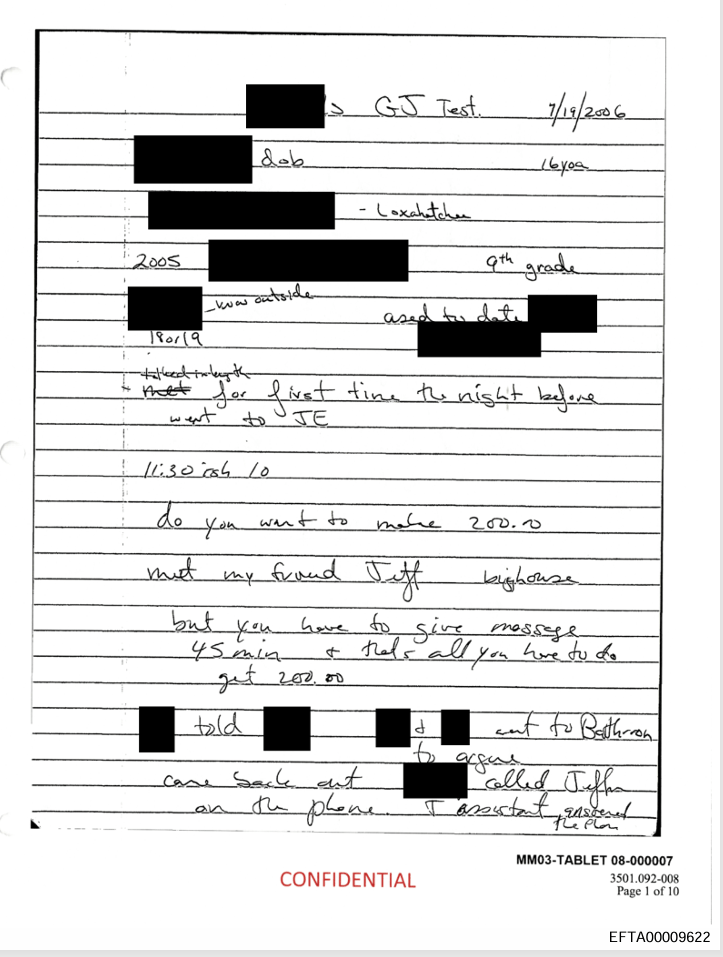 's GJ Test. 7/19/2006
dob 16yoa
- Loxahatchee
2005 9th grade
was outside used to date
18 or 19
talked in length
met for first time the night before
went to JE
11:30ish 10
do you want to make 200.00
meet my friend Jeff big house
but you have to give message
45 min + thats all you have to do
get 200.00
told + went to Bathroom
to argue
came back out called Jeffrey
on the phone. assistant answered
the phon
MM03-TABLET 08-000007
CONFIDENTIAL
3501.092-008
Page 1 of 10
EFTA00009622